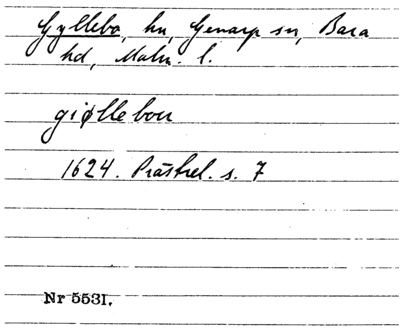 Gyllebo, hn, Genarp sn, Bara
hd, Malm. l.
giøllebou
1624. Prästrel. s. 7
Nr 5531.